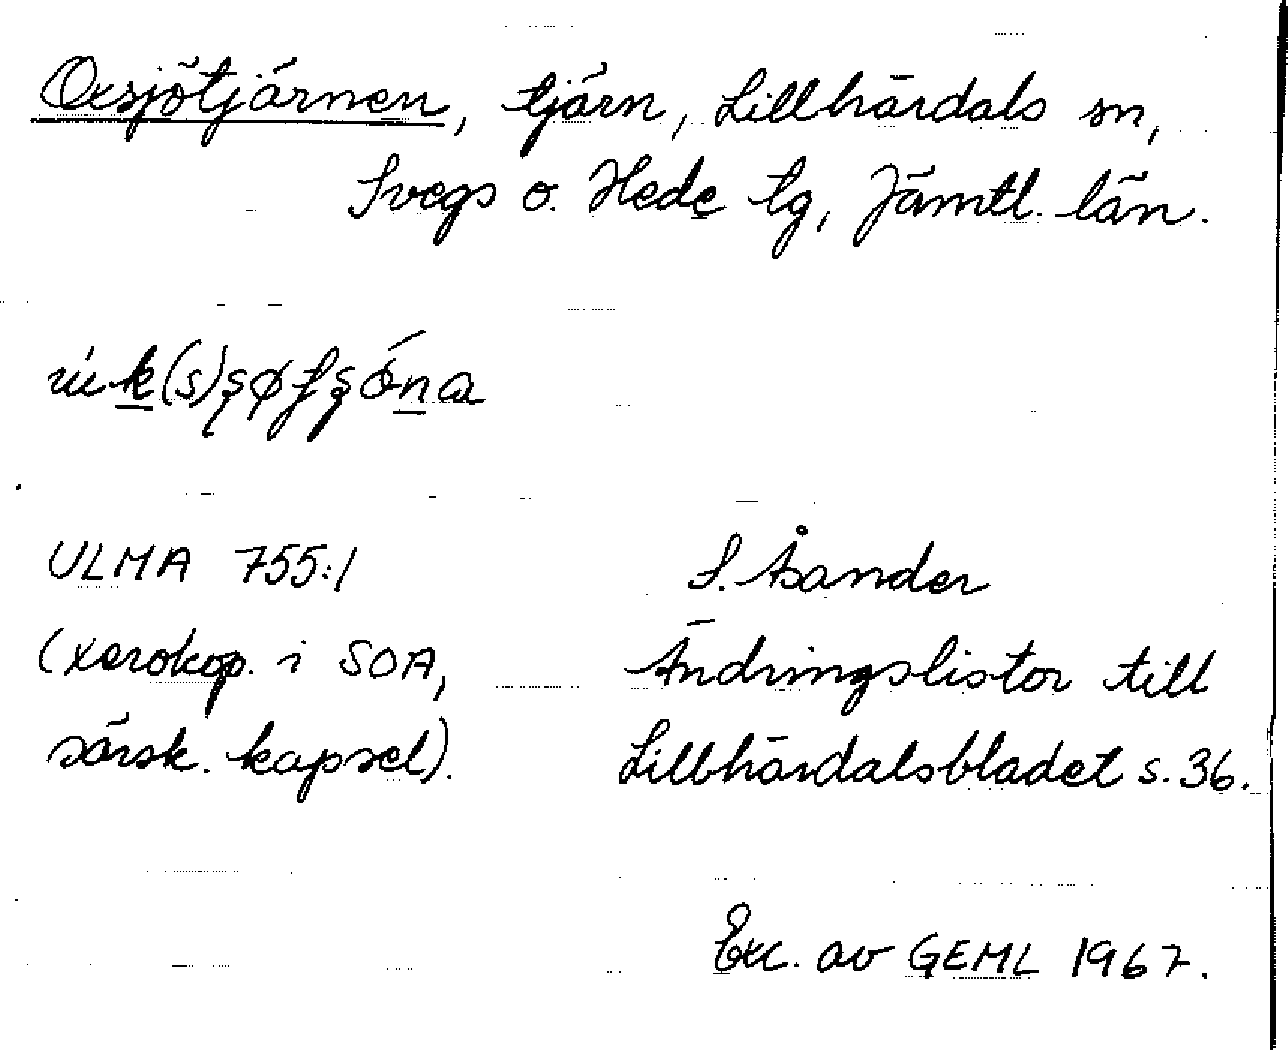 Oxsjötjärnen, tjärn, Lillhärdals sn,
Svegs o. Hede tg, Jämtl. län.
ULMA 755:1
(xerokop. i SOA,
särsk. kapsel).
S. Åsander
Ändringslistor till
Lillhärdalsbladet s. 36.
Exc. av GEML 1967.